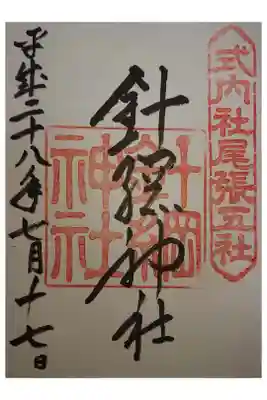 式内社尾張五社
針綱神社
針綱神社
平成二十八年七月十七日